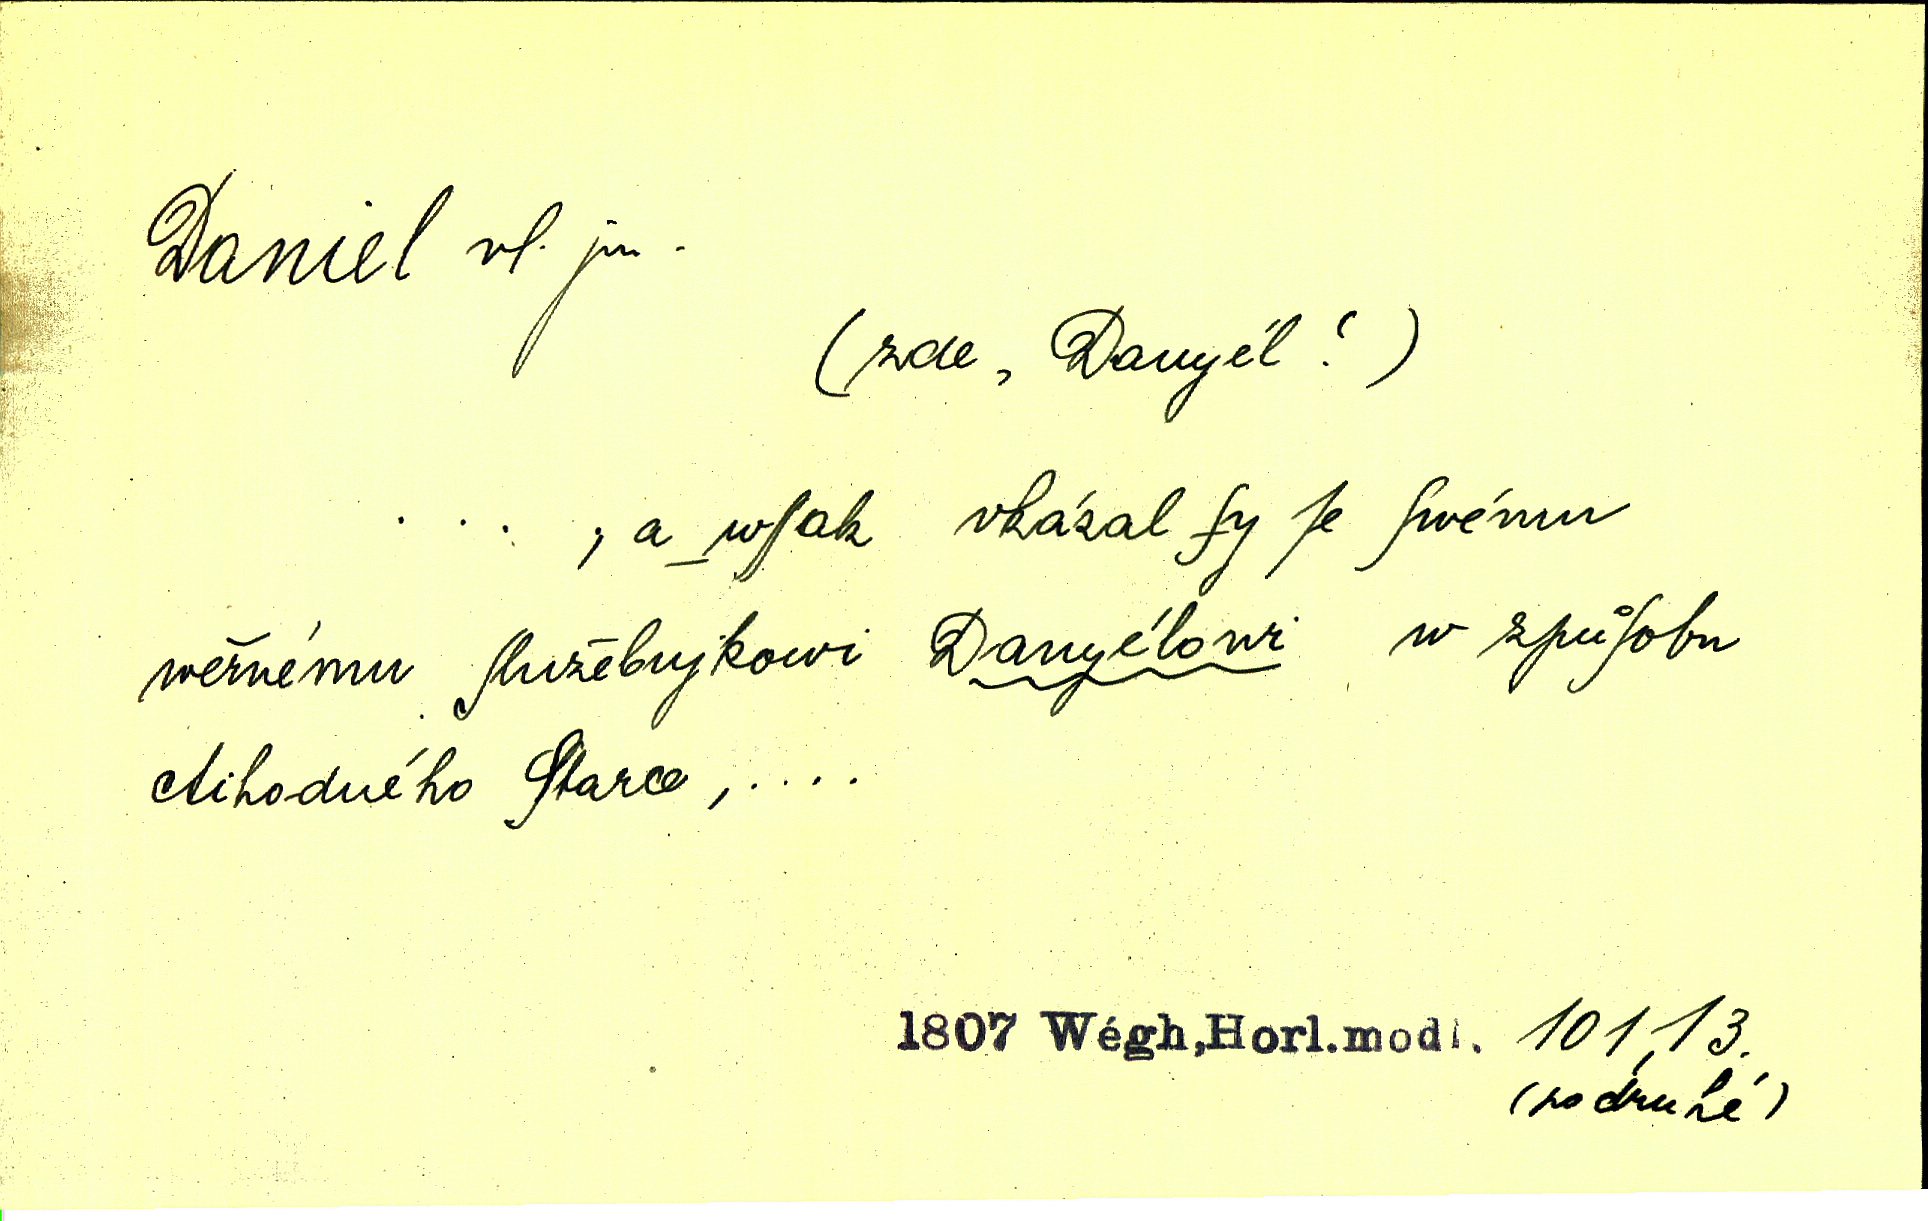 Daniel vl. jm.
(zde „Danyél“)
. . . , a wſſak vkázal ſy ſe ſwému
wěrnému ſlužebnjkowi Danyélowi w zpuͦſobu
ctihodného Starce, . . . .
1807 Wégh,Horl.modl. 101,13.
(po druhé)